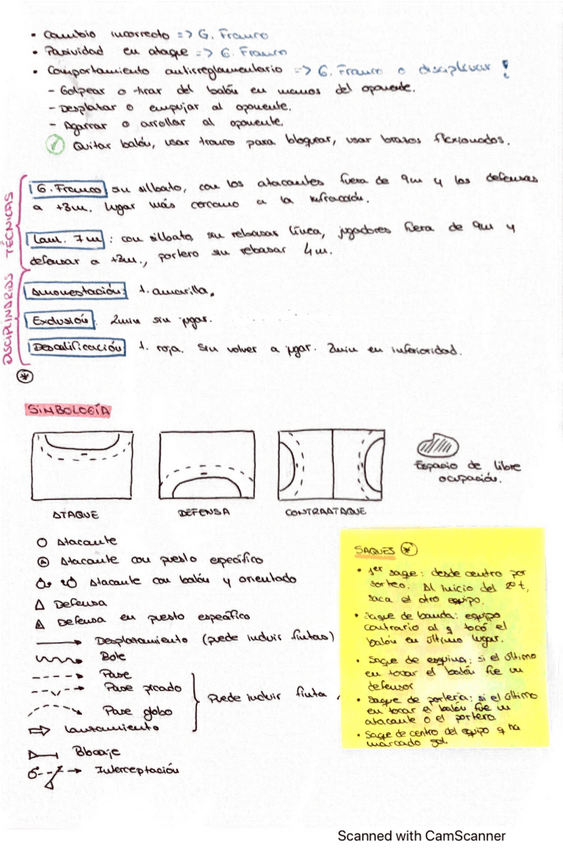 • Cambio incorrecto => G. Franco
• Pasividad en ataque => G. Franco
• Comportamiento antirreglamentario => G. Franco o disciplinar !
- Golpear o tirar del balón en manos del oponente.
- Desplazar o empujar al oponente.
- Agarrar o arrollar al oponente.
✓ Quitar balón, usar tronco para bloquear, usar brazos flexionados.
TÉCNICAS
G. Franco sin silbato, con los atacantes fuera de 9m y los defensas
a +3m. Lugar más cercano a la infracción.
Lan. 7m : con silbato sin rebasar línea, jugadores fuera de 9m y
defensas a +3m., portero sin rebasar 4m.
DISCIPLINARIOS
Amonestación: t. amarilla.
Exclusión: 2min sin jugar.
Descalificación t. roja. Sin volver a jugar. 2min en inferioridad.
*
SIMBOLOGÍA
ATAQUE
DEFENSA
CONTRAATAQUE
Espacio de libre
ocupación.
Atacante
Atacante con puesto específico
Atacante con balón y orientado
Defensa
Defensa en puesto específico
Desplazamiento (puede incluir fintas)
Bote
Pase
Pase picado
Pase globo
Lanzamiento
Puede incluir finta
Blocaje
Interceptación
SAQUES *
• 1er saque: desde centro por
sorteo. Al inicio del 2ºt,
saca el otro equipo.
• Saque de banda: equipo
contrario al q tocó el
balón en último lugar.
• Saque de esquina: si el último
en tocar el balón fue un
defensor
• Saque de portería: si el último
en tocar el balón fue un
atacante o el portero
• Saque de centro del equipo q ha
marcado gol.
Scanned with CamScanner